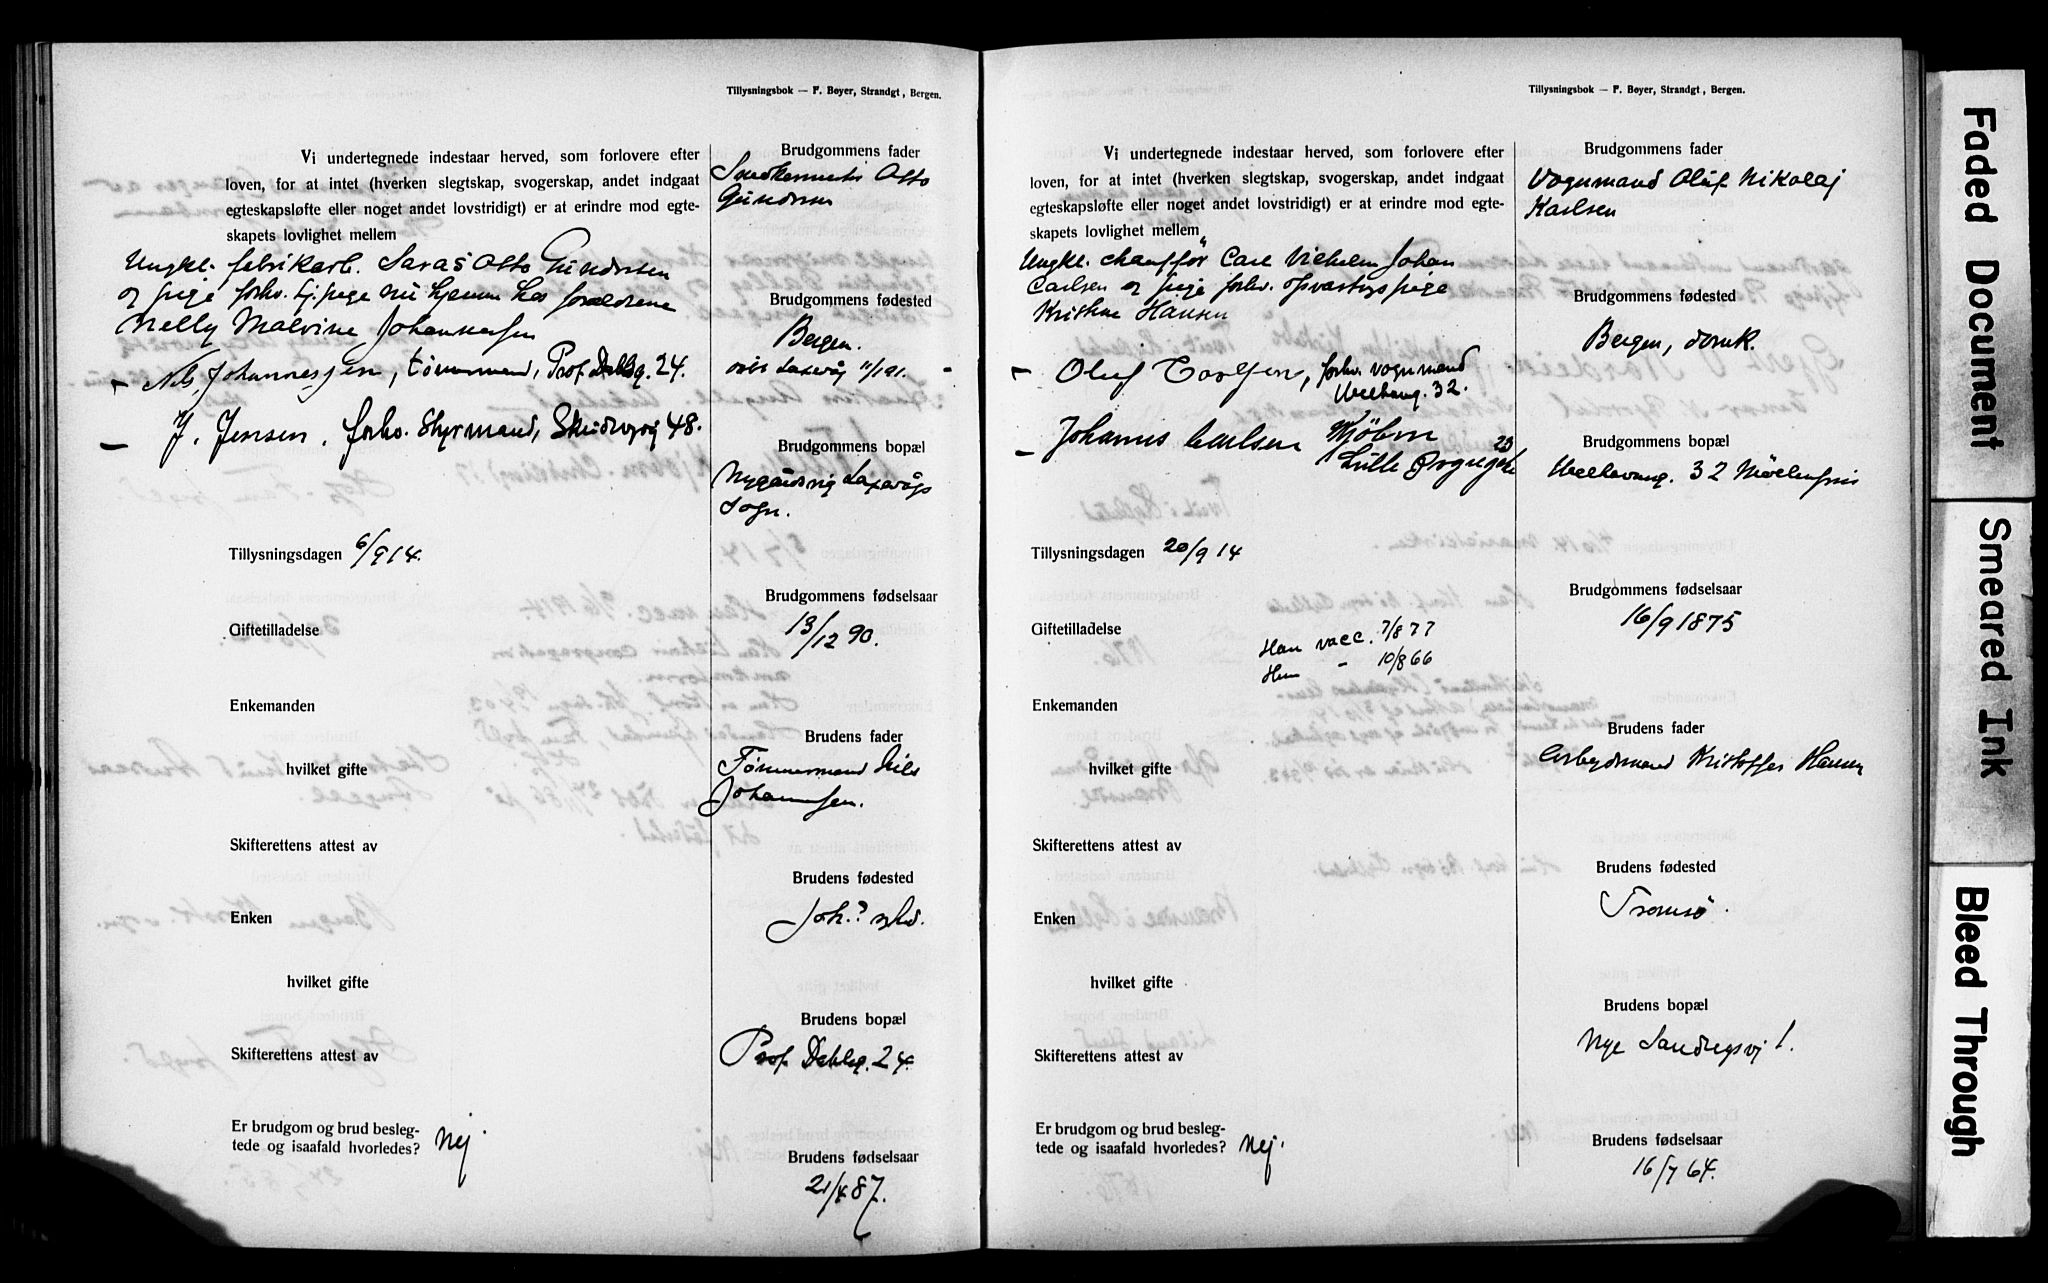 Tillysningsbok — F. Bøyer, Strandgt, Bergen.
Vi undertegnede indestaar herved, som forlovere efter
loven, for at intet (hverken slegtskap, svogerskap, andet indgaat
egteskapsløfte eller noget andet lovstridigt) er at erindre mod egte-
skapets lovlighet mellem
Ungk. fabrikarb. Otto Gundersen
og pige forhv. tj.pige nu hjemme hos forældrene
Nelly Malvine Johannessen
Nils Johannessen, tømmermand, Prof Dahlsg. 24.
J. Jensen. forhv. Styrmand, 48.
Tillysningsdagen 6/9 14.
Giftetilladelse
Enkemanden
hvilket gifte
Skifterettens attest av
Enken
hvilket gifte
Skifterettens attest av
Er brudgom og brud besleg-
tede og isaafald hvorledes? Nej.
Brudgommens fader
Otto
Gundersen
Brudgommens fødested
Bergen.
Laxevåg
Brudgommens bopæl
Laxevågs
Sogn.
Brudgommens fødselsaar
13/12 90.
Brudens fader
Tømmermand Nils
Johannessen.
Brudens fødested
Joh.?
Brudens bopæl
Prof Dahlsg. 24.
Brudens fødselsaar
21/4 87.
Tillysningsbok — F. Bøyer, Strandgt, Bergen.
Vi undertegnede indestaar herved, som forlovere efter
loven, for at intet (hverken slegtskap, svogerskap, andet indgaat
egteskapsløfte eller noget andet lovstridigt) er at erindre mod egte-
skapets lovlighet mellem
Ungk. chauffør Carl Vilhelm Johan
Carlsen og pige forhv. opvartngspige
Kristine Hansen
Oluf Carlsen, forhv. vognmand
32.
Johannes Carlsen Kjøbm
Lille Øvregade 23
Tillysningsdagen 20/9 14
Giftetilladelse
Han vacc. 7/8 77
Hun - 10/8 66
Enkemanden
hvilket gifte
Skifterettens attest av
Enken
hvilket gifte
Skifterettens attest av
Er brudgom og brud besleg-
tede og isaafald hvorledes? Nej.
Brudgommens fader
Vognmand Oluf Nikolaj
Karlsen
Brudgommens fødested
Bergen, domk.
Brudgommens bopæl
32 Møhlenpris
Brudgommens fødselsaar
16/9 1875
Brudens fader
Arbeydsmand Kristoffer Hansen
Brudens fødested
Tromsø.
Brudens bopæl
Nye Sandvigsvej 1.
Brudens fødselsaar
16/7 64.
Faded Document
Smeared Ink
Bleed Through